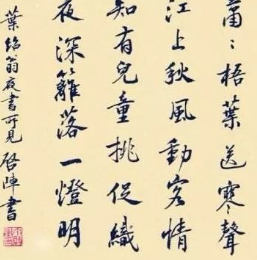 蕭〻梧葉送寒聲
江上秋風動客情
知有兒童挑促織
夜深籬落一燈明
葉紹翁夜書所見 启陣書